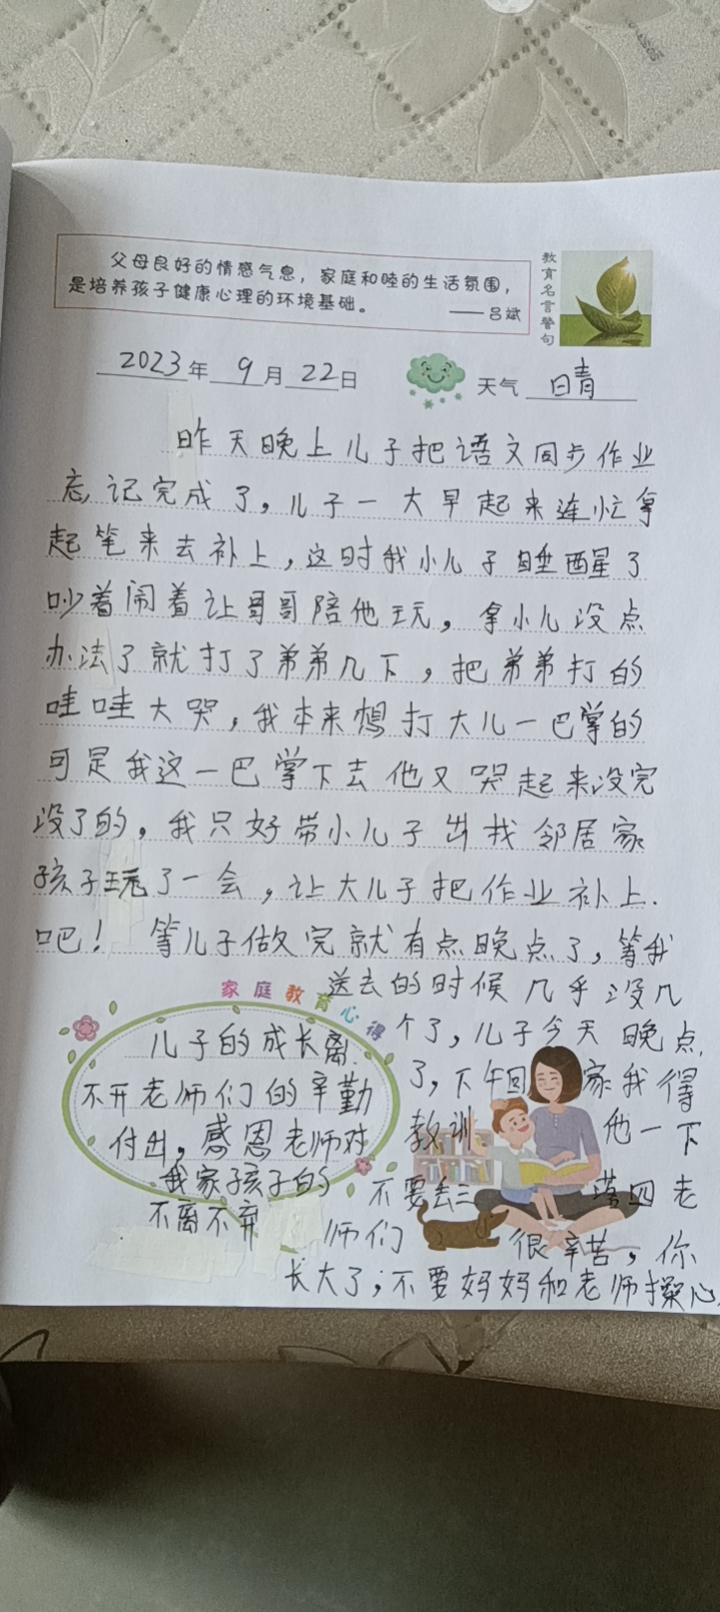 父母良好的情感气息，家庭和睦的生活氛围，
是培养孩子健康心理的环境基础。
——吕斌
教育名言警句
2023年 9月 22日
天气 晴
昨天晚上儿子把语文同步作业
忘记完成了，儿子一大早起来连忙拿
起笔来去补上，这时我小儿子睡醒了
吵着闹着让哥哥陪他玩，拿小儿没点
办法了就打了弟弟几下，把弟弟打的
哇哇大哭，我本来想打大儿一巴掌的
可是我这一巴掌下去他又哭起来没完
没了的，我只好带小儿子出找邻居家
孩子玩了一会，让大儿子把作业补上.
吧！等儿子做完就有点晚点了，等我
送去的时候几乎没几
个了，儿子今天晚点
了，下午回家我得
教训他一下
不要丢三落四老
师们很辛苦，你
长大了，不要妈妈和老师操心
家庭教育心得
儿子的成长离
不开老师们的辛勤
付出，感恩老师对
我家孩子的
不离不弃